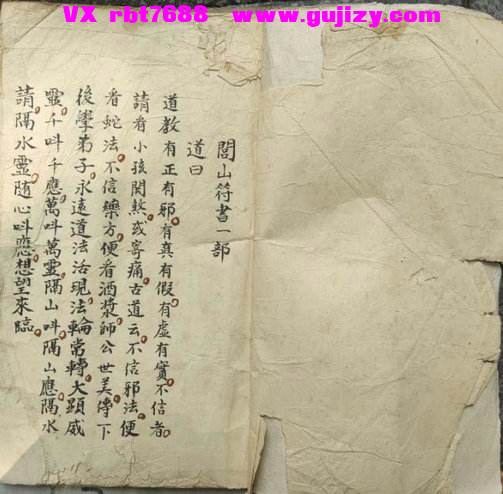 VX rbt7688 www.gujizy.com
閭山符書一部
道曰
道教有正有邪有真有假有虛有實不信者
請看小孩関煞或寄痛古道云不信邪法便
看蛇法不信藥方便看酒漿師公世美傳下
後學弟子永遠道法活現法輪常轉大顯威
靈千呌千應萬呌萬靈隔山呌隔山應隔水
請隔水靈随心呌應想望來臨